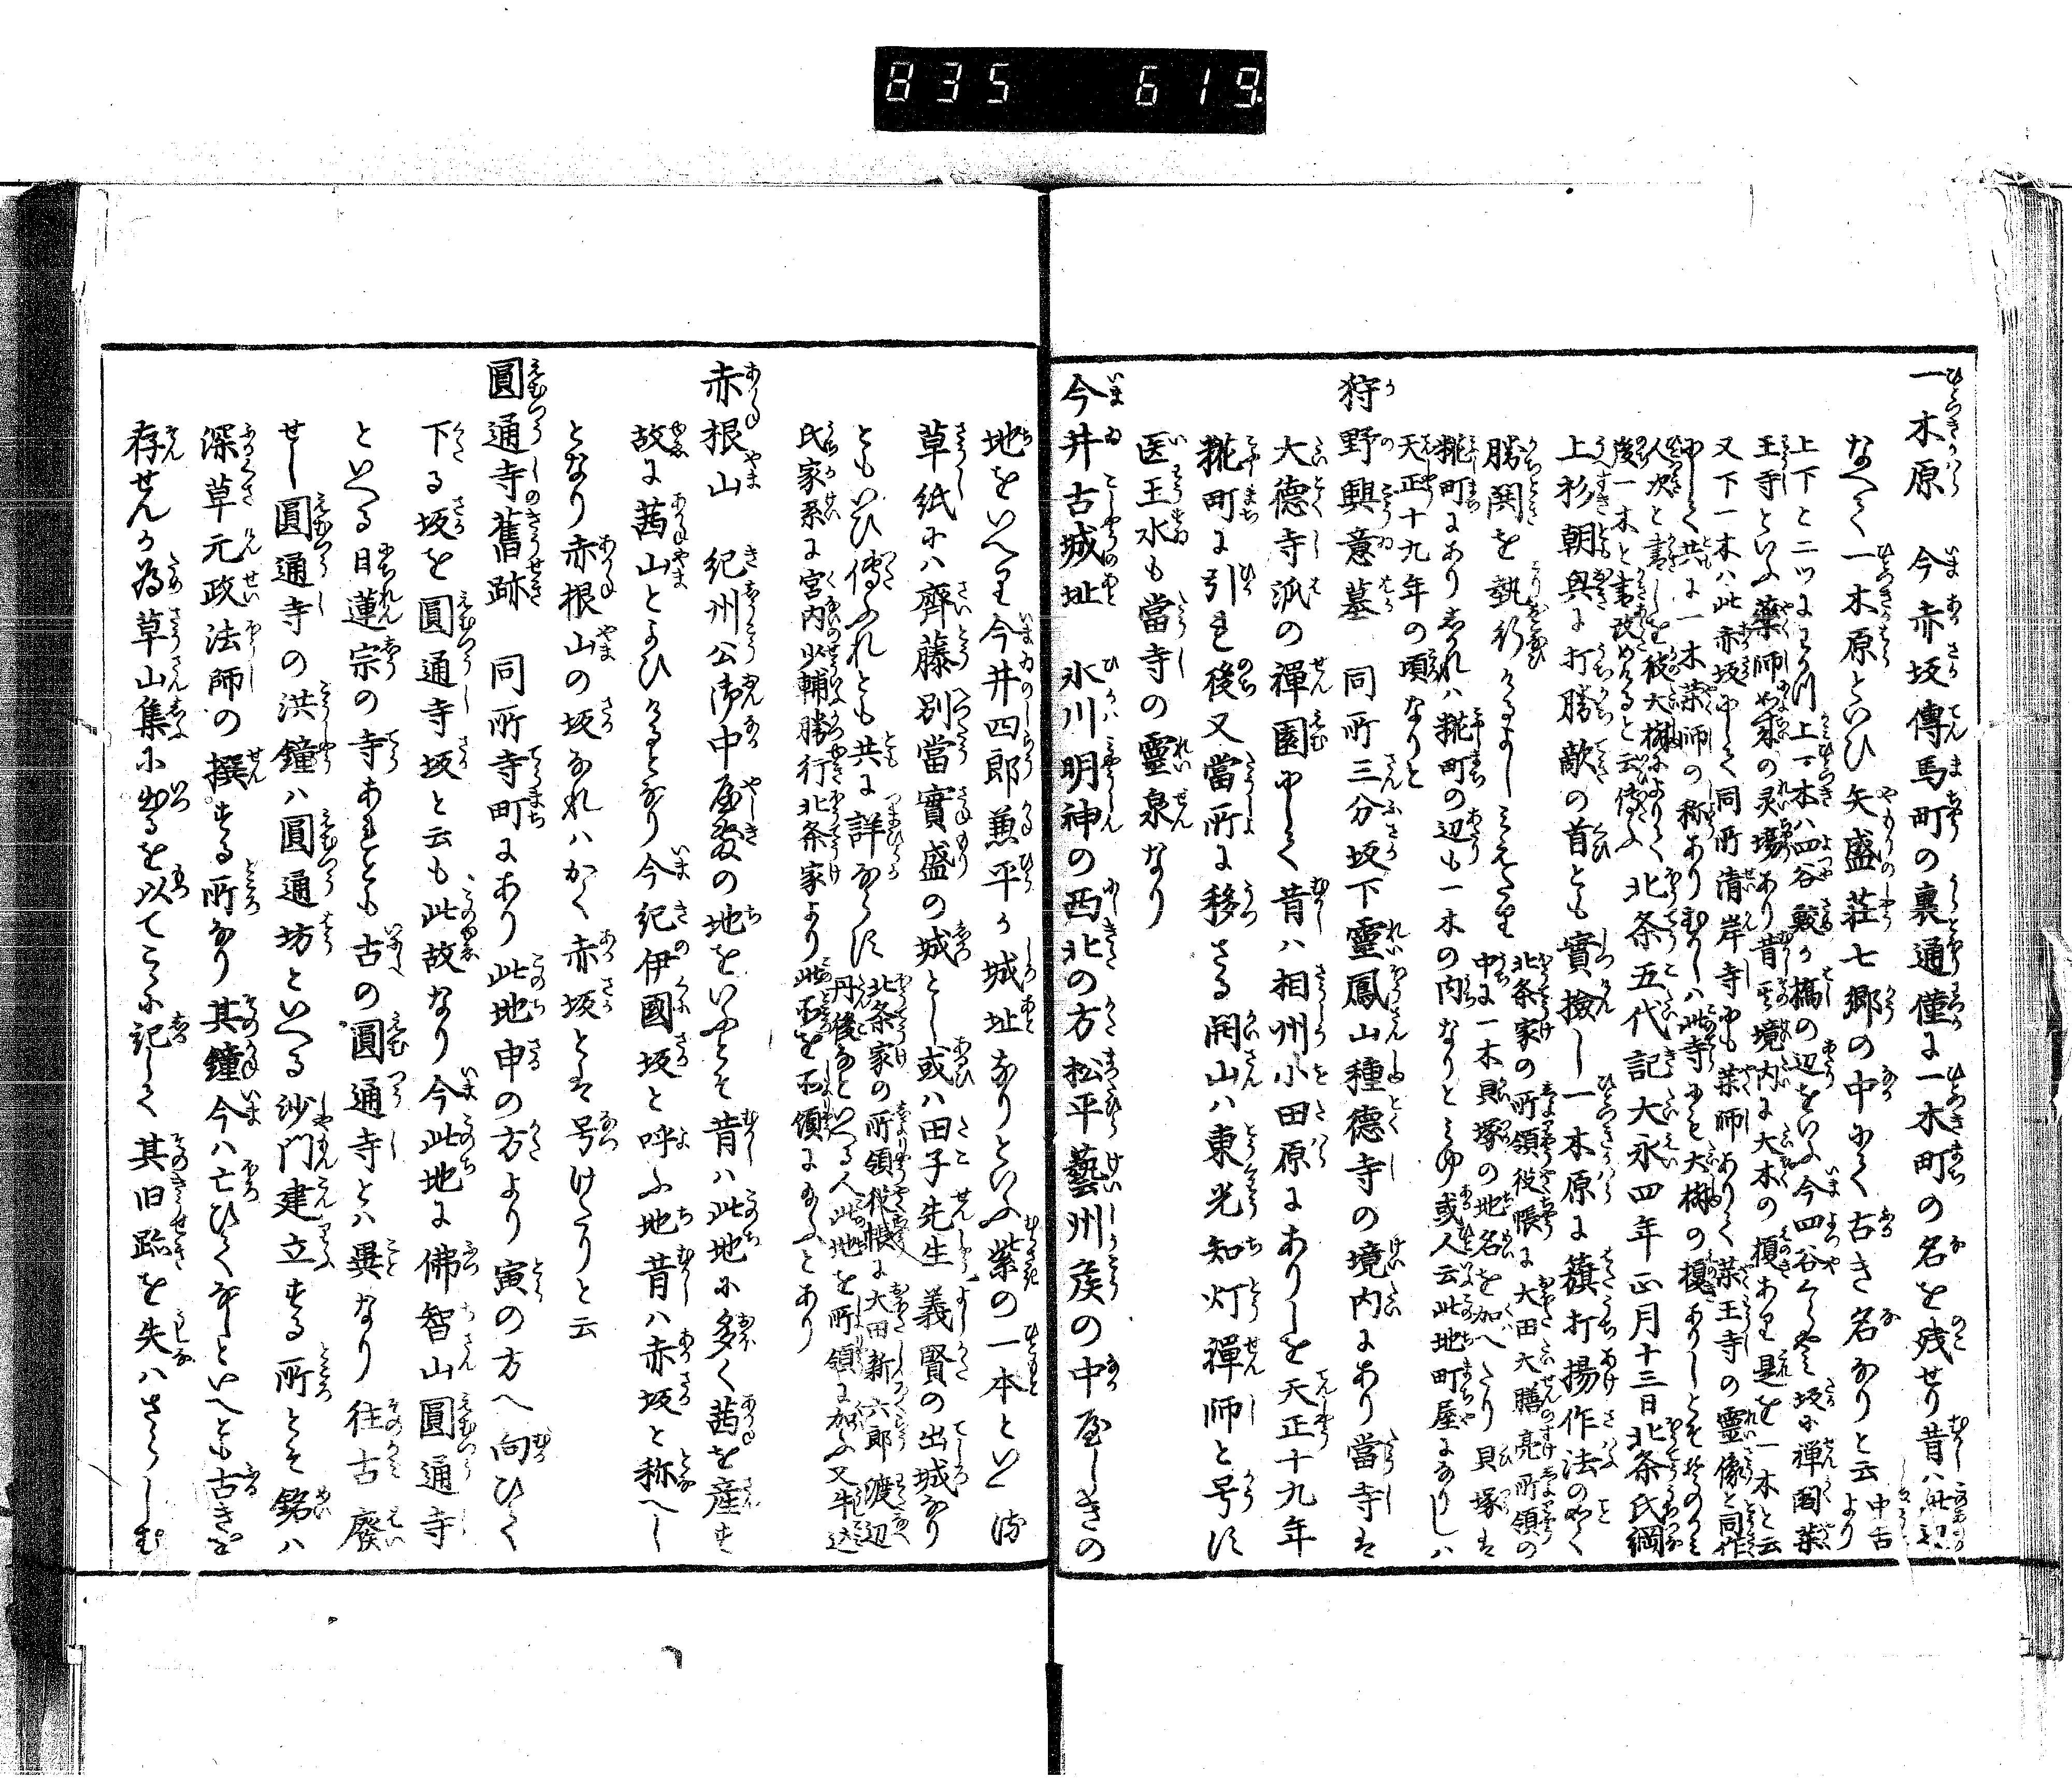 835 619
一木原 今赤坂傳馬町の裏通僮に一木町の名を残せり昔ハ此辺
なへて一木原といひ矢盛荘七郷の中にて古き名なりと云
中古より
上下と二ツにわかつ上一木ハ四谷鮫か橋の辺をいふ今四谷くらやミ坂に禅閣薬
王寺といふ薬師如来の灵場あり昔其境内に大木の榎あり是を一木と云
又下一木ハ此赤坂にして同所清岸寺にも薬師ありて薬王寺の靈像と同作
にして共に一木薬師の称ありむかしハ此寺にも大樹の榎ありしとそその
人次と書しを彼大樹によりて
後一木と書改めけると云傳ふ
北条五代記大永四年正月十三日北条氏綱
上杉朝興に打勝敵の首とも實撿し一木原に籏打揚作法のことく
勝関を執行けるよしミえたり
北条家の所領役帳に大田大膳亮所領の
中に一木貝塚の地名を加へたり貝塚は
糀町にありされハ糀町の辺も一木の内なりとミゆ或人云此地町屋になりしハ
天正十九年の頃なりと
狩野興意墓 同所三分坂下靈鳳山種德寺の境内にあり當寺は
大德寺派の禪園にして昔ハ相州小田原にありしを天正十九年
糀町に引れ後又當所に移さる開山ハ東光知灯禪師と号す
医王水も當寺の靈泉なり
今井古城址 氷川明神の西北の方松平藝州侯の中屋しきの
地をいへり今井四郎兼平か城址なりといふ紫の一本といへる
草紙にハ齊藤別當實盛の城とし或ハ田子先生義賢の出城なり
ともいひ傳ふれとも共に詳ならす
北条家の所領役帳に大田新六郎渡辺
丹後なといへる人此地を所領に加ふ又牛込
氏家系に宮内少輔勝行北条家より此所を所領にあたふとあり
赤根山 紀州公御中屋敷の地をいふとそ昔ハ此地に多く茜を産す
故に茜山とよひけるとなり今紀伊國坂と呼ふ地昔ハ赤坂と称へし
となり赤根山の坂なれハかく赤坂とは号けたりと云
圓通寺舊跡 同所寺町にあり此地申の方より寅の方へ向ひて
下る坂を圓通寺坂と云も此故なり今此地に佛智山圓通寺
といへる日蓮宗の寺あれとも古の圓通寺とハ異なり往古廢
せし圓通寺の洪鐘ハ圓通坊といへる沙門建立する所とそ銘ハ
深草元政法師の撰する所なり其鐘今ハ亡ひてなしといへとも古きを
存せんか為草山集に出るを以てこゝに記して其旧跡を失ハさらしむ